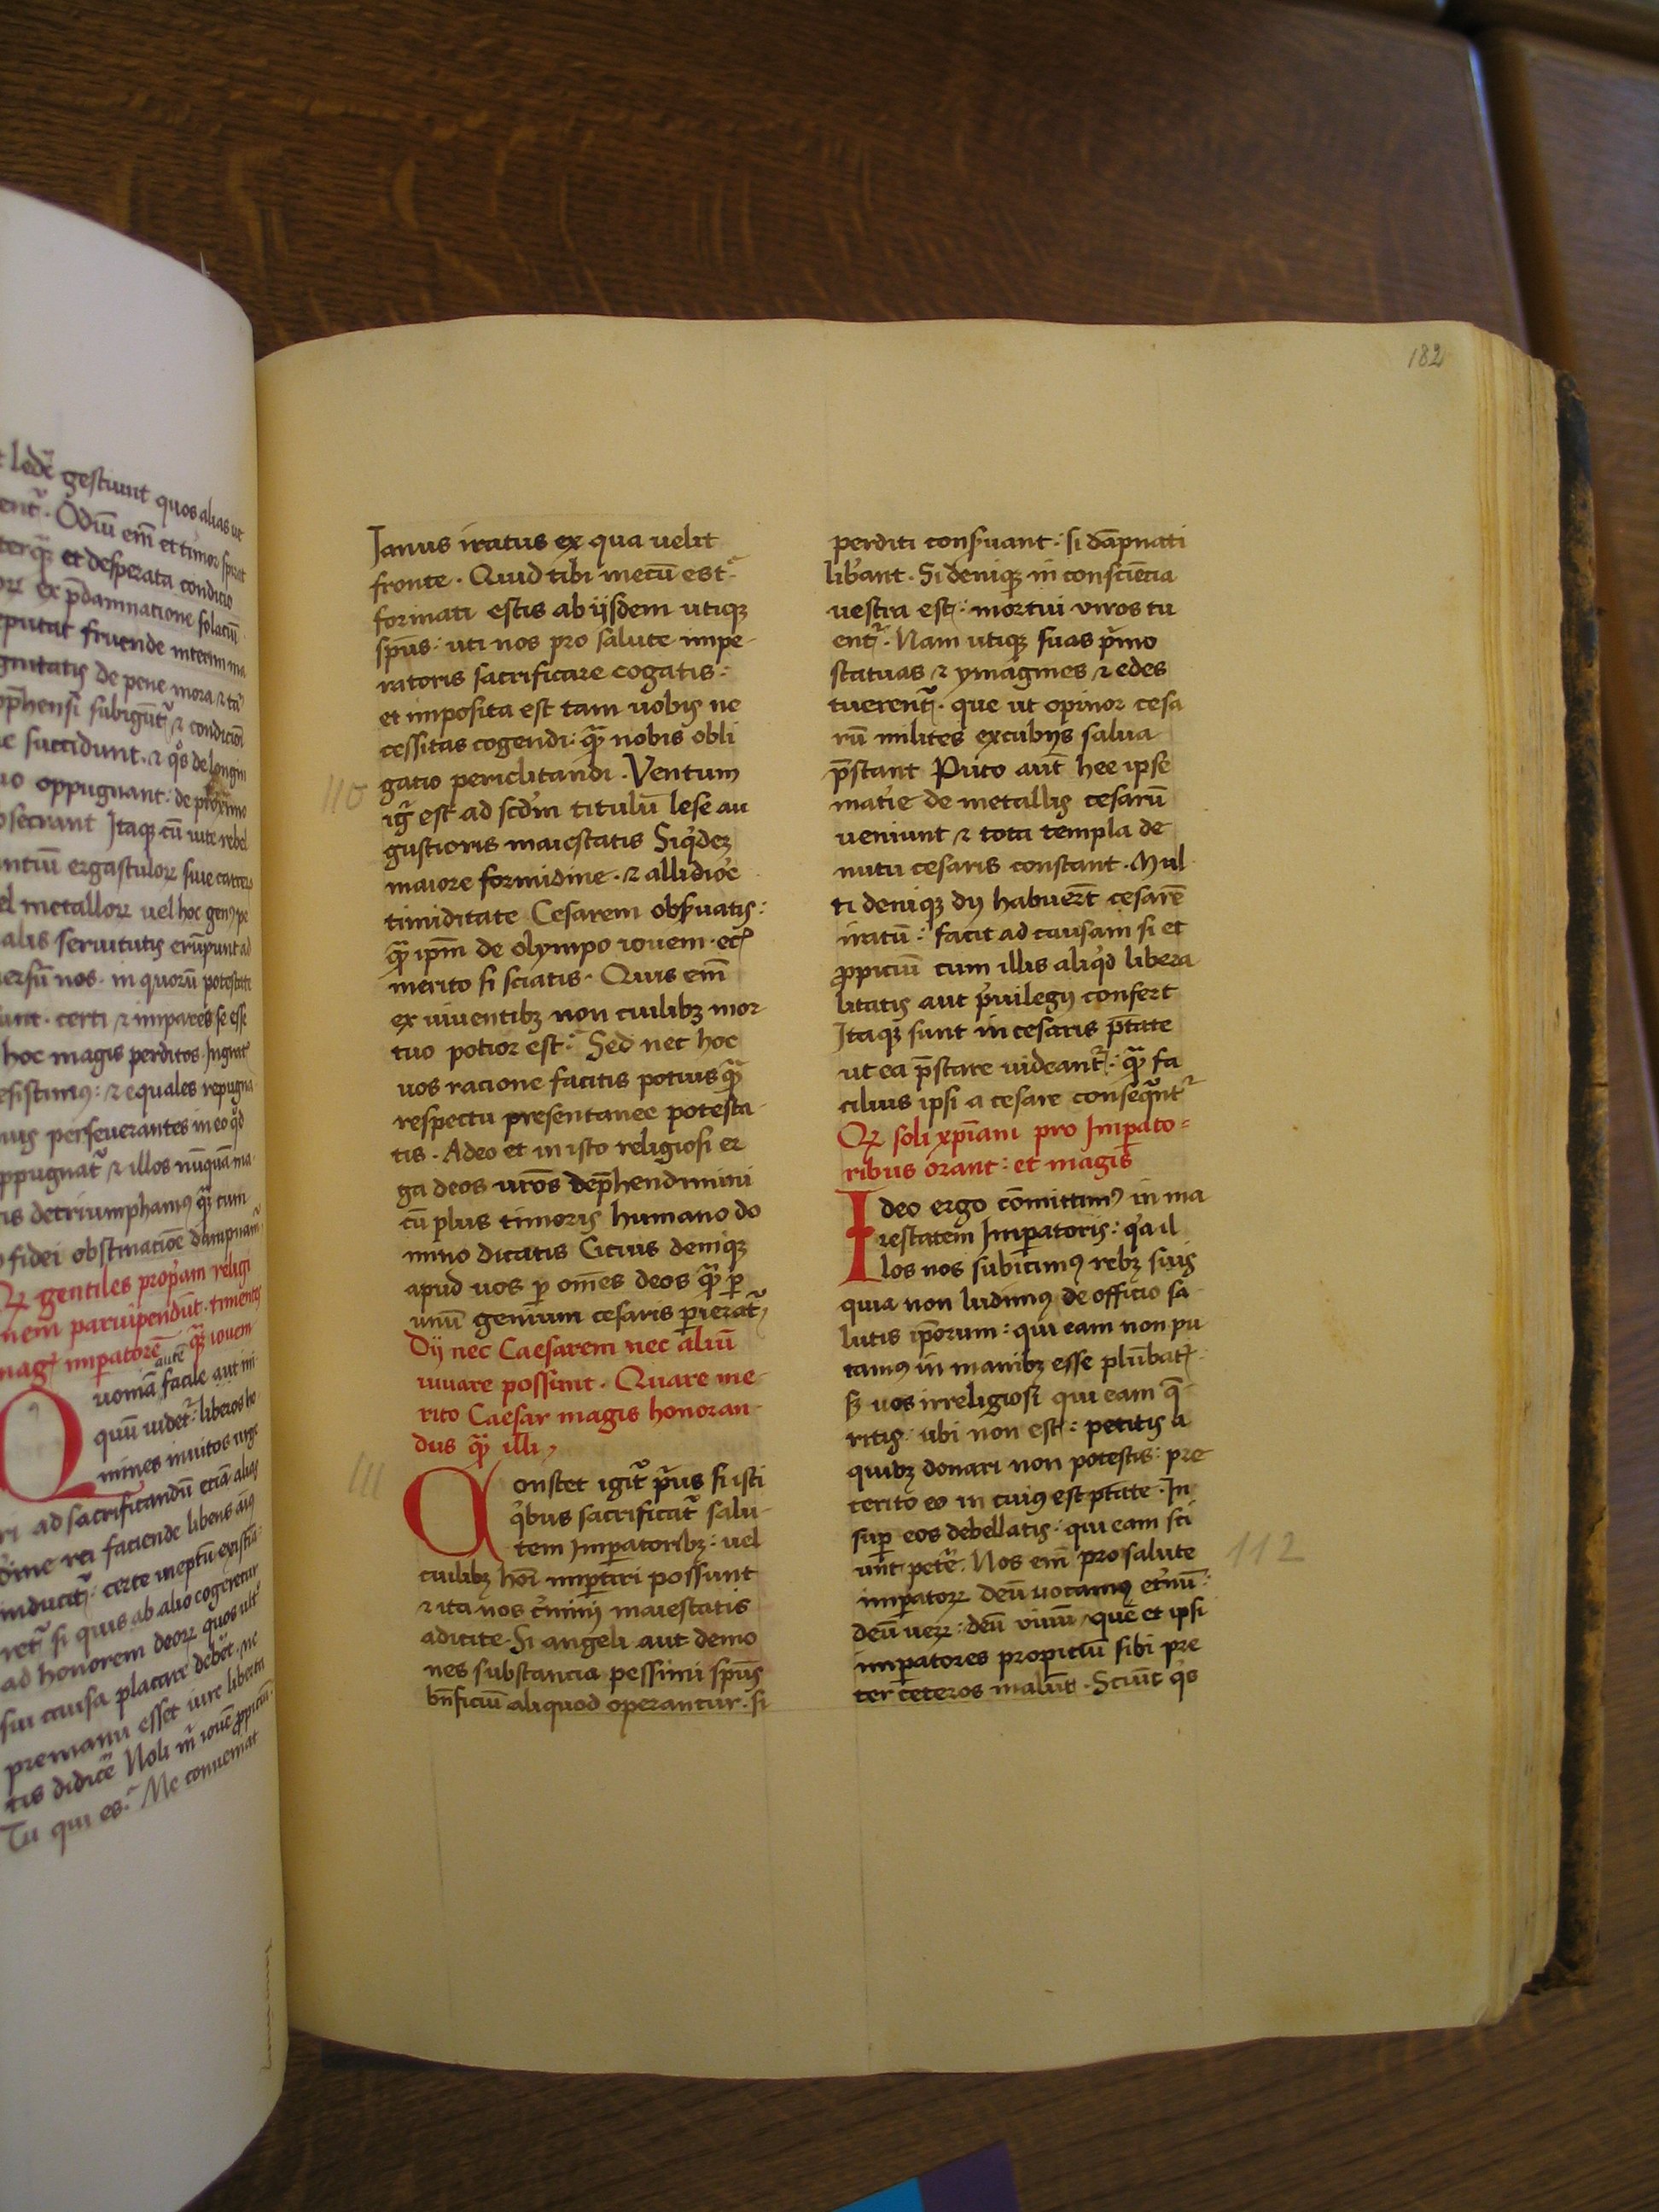 182
t ledē gestiunt quos alias ut
ent᷑. Odiū em̄ et timor spirat
terq᷒ et desperata condicio
ex p̄damnatione solaciū
eputat fruende interim ma
gnitatis de pene mora ⁊ ta
p̄hensi subigūt᷑ ⁊ condicioī
e succidunt. ⁊ q̊s de longin
uo oppugnant: de proximo
secrant Itaq᷒ cū vice rebel
ntiū ergastuloꝝ sive carcere
el metalloꝝ vel hoc gen᷒ pe
alis servitutis erūpunt ad
ersū nos. in quorū potestate
unt. certi ⁊ impares se esse
hoc magis perditos. Ingrat᷒
esistim᷒: ⁊ equales repugna
mus perseverantes in eo q̊d
ppugnat᷑ ⁊ illos nūquā ma
is detriumpham᷒ qᷓ cum
fidei obstinacioē dampnam᷑
Qꝝ gentiles prop̄am religi
nem parvipendūt. timentes
mag᷒ imp̄atorē qᷓ iovem
Quoniā autē facile aut ini
quū videt᷑: liberos ho
mines invitos urge
ri ad sacrificandū etiā alias
divine rei faciende libens aīus
inducit᷑: certe ineptū existīa
ret᷑ si quis ab alio cogeretur
ad honorem deoꝝ quos ult᷑
sui causa placare debēt. ne
premanu esset iure liberta
tis dicē Noli m̄ iovē p̄piciū
Tu qui es? Me conveniat
Janus iratus ex qua velit
fronte. Quid tibi mecū est?
formati estis ab ijsdem utiq᷒
sp̄us: uti nos pro salute impe-
ratoris sacrificare cogatis:
et imposita est tam vobis ne
cessitas cogendi: qᷓ nobis obli
gatio periclitandi. Ventum
110
igr̄ est ad scd̄m titulū lese au
gustioris maiestatis Siq̇deꝫ
maiore formidine. ⁊ allidiōe
timiditate Cesarem obs̄vatis:
qᷓ ip̄m de olympo iovem. ec̄
merito si sciatis. Quis em̄
ex viventibꝫ non cuilibꝫ mor
tuo potior est? Sed nec hoc
vos racione facitis potius qᷓ
respectu presentanee potesta-
tis. Adeo et in isto religiosi er
ga deos vr̄os dep̄hendimini
cū plus timoris humano do
mino dicatis Citius deniq᷒
apud vos ꝑ om̄es deos qᷓ ꝑ
unū genium cesaris perierat᷑
Dij nec Caesarem nec aliū
iuvare possunt. Quare me-
rito Caesar magis honoran-
dus qᷓ illi
111
Constet igit᷑ p̄us si isti
q̇bus sacrificat᷑ salu-
tem Imperatoribꝫ: vel
cuilibꝫ hoī imp̄tiri possunt
⁊ ita nos c̄minij maiestatis
adicite. Si angeli aut demo
nes substancia pessimi sp̄us
bn̄ficiū aliquod operantur. si
perditi cons̄vant: si dāpnati
lib̄ant. Si deniq᷒ in consciēcia
vestra est: mortui vivos tu
ent᷑. Nam utiq᷒ suas p̄mo
statuas ⁊ ymagines ⁊ edes
tuerent᷑. que ut opinor cesa
rū milites excubijs salva
p̄stant Puto aut̄ hee ipse
mat̄ie de metallis cesarū
veniunt ⁊ tota templa de
nutu cesaris constant. Mul
ti deniq᷒ dij habuer̄t cesarē
iratū: facit ad causam si et
ꝓpiciū cum illis aliq̇d libera
litatis aut p̄vilegij confert
Itaq᷒ sunt in cesaris p̄tate
ut ea p̄stare videant᷑: qᷓ fa
cilius ipsi a cesare conseqᷓnt᷑
Qꝝ soli xp̄iani pro Imperato=
ribus orant: et magis
Ideo ergo cōmittim᷒ in ma
iestatem Imp̄atoris: q̇a il
los nos subicim᷒ rebꝫ suis
quia non ludim᷒ de officio sa
lutis ip̄orum: qui eam non pu
tam᷒ in manibꝫ esse plūbat᷒
sꝫ vos irreligiosi qui eam q̄
ritis: ubi non est: petitis a
quibꝫ donari non potestis: pre
terito eo in cui᷒ est ptate. In
112
suꝑ eos debellatis: qui eam sci
unt petē. Nos em̄ pro salute
imp̄atoꝝ deū vocam᷒ et̄nū:
deū veꝝ: deū vivū quē et ipsi
imp̄atores propiciū sibi pre
ter ceteros malūt. Sciūt q̇s